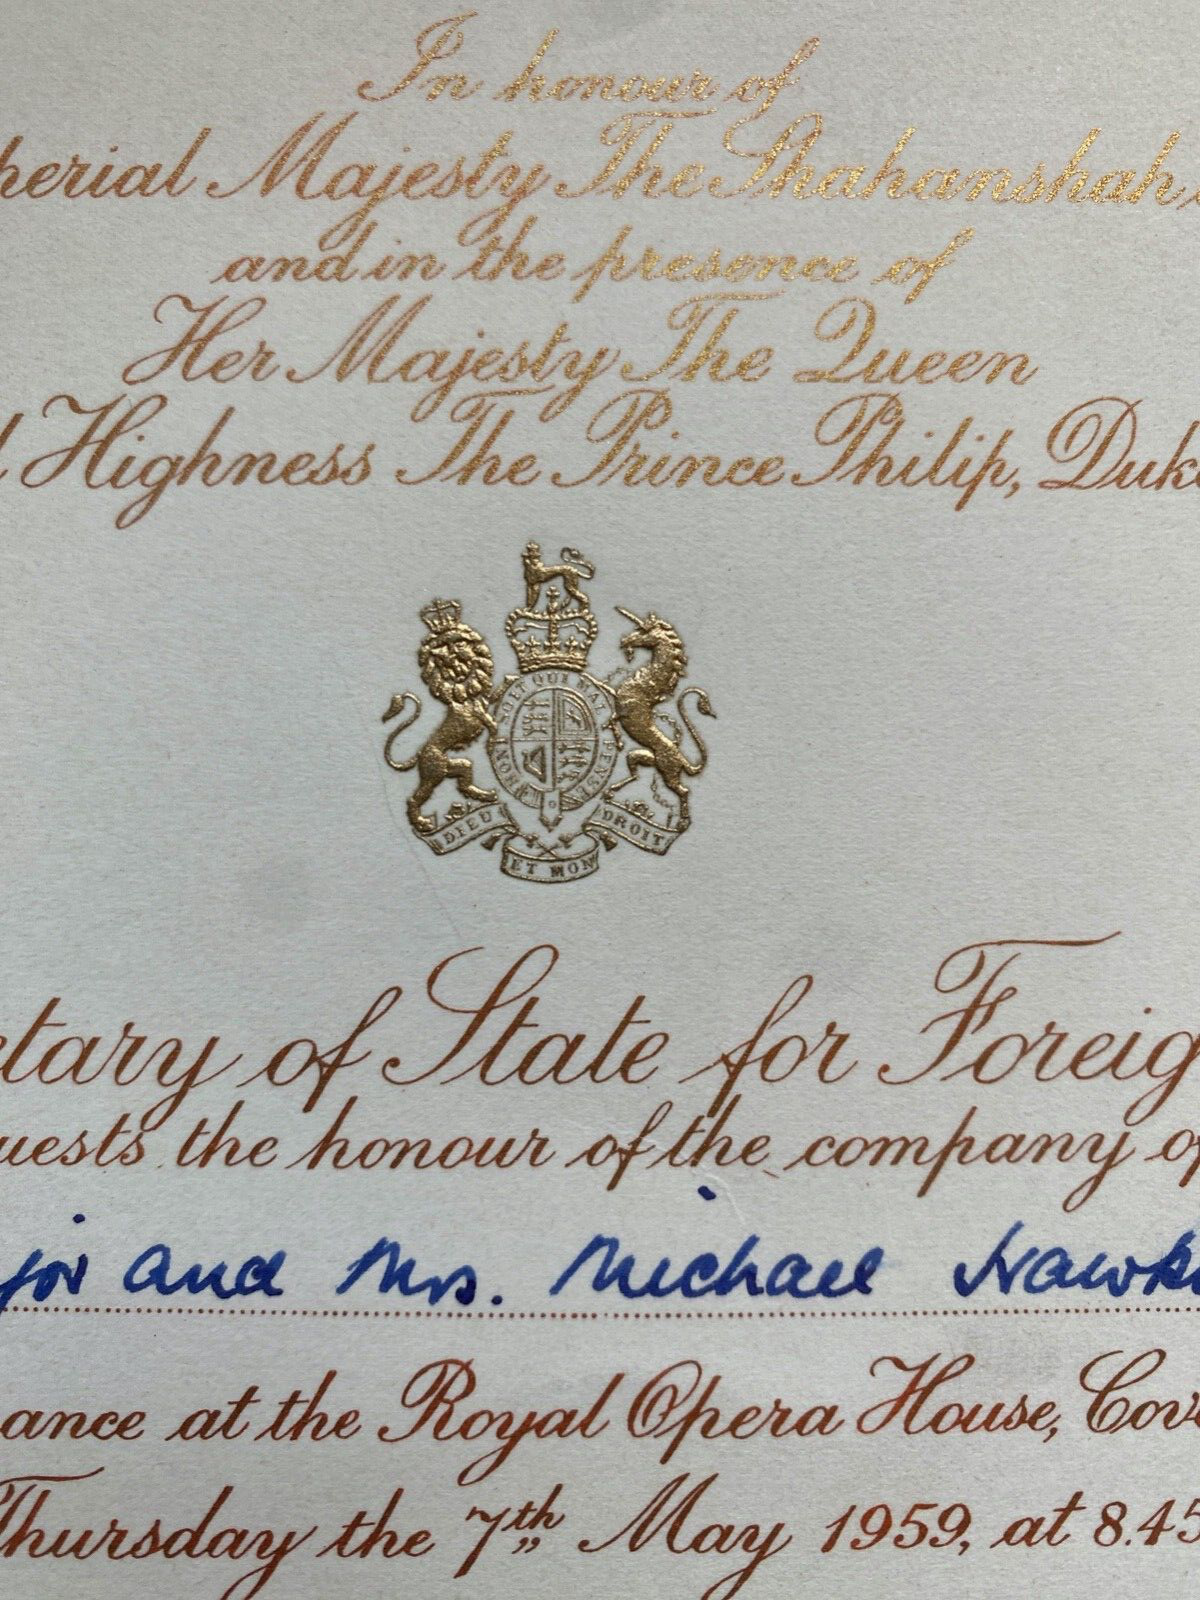 In honour of
perial Majesty The Shahanshah
and in the presence of
Her Majesty The Queen
Highness The Prince Philip, Duke
HONI SOIT QUI MAL Y PENSE
DIEU ET MON DROIT
etary of State for Foreig
uests the honour of the company of
jor and Mrs. Michael Hawk
ance at the Royal Opera House, Cov
Thursday the 7th May 1959, at 8.45